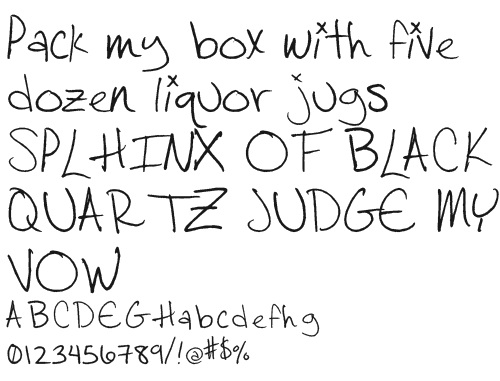 Pack my box with five
dozen liquor jugs
SPLHINX OF BLACK
QUARTZ JUDGE MY
VOW
ABCDEGHabcdefhg
0123456789/!@#$%